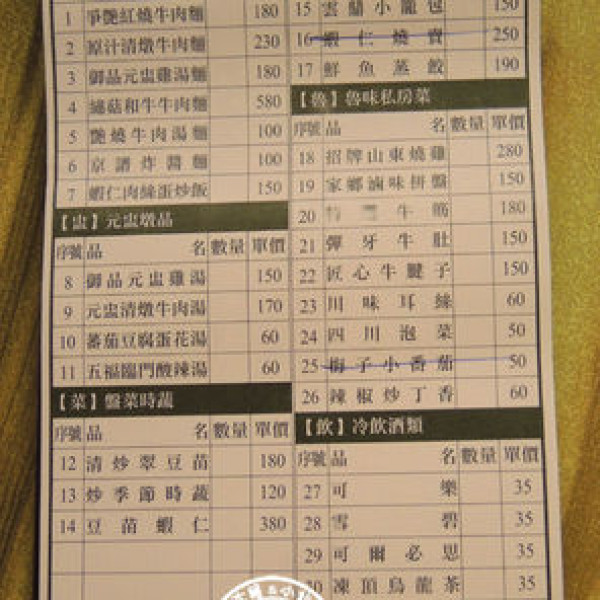 1 爭艷紅燒牛肉麵 180
2 原汁清燉牛肉麵 230
3 御品元盅雞湯麵 180
4 繡菇和牛牛肉麵 580
5 艷燒牛肉湯麵 100
6 京譜炸醬麵 100
7 蝦仁肉絲蛋炒飯 150
【盅】元盅燉品
序號 品名 數量 單價
8 御品元盅雞湯 150
9 元盅清燉牛肉湯 170
10 蕃茄豆腐蛋花湯 60
11 五福臨門酸辣湯 60
【菜】盤菜時蔬
序號 品名 數量 單價
12 清炒翠豆苗 180
13 炒季節時蔬 120
14 豆苗蝦仁 380
15 雲鼎小籠包 150
16 蝦仁燒賣 250
17 鮮魚蒸餃 190
【魯】魯味私房菜
序號 品名 數量 單價
18 招牌山東燒雞 280
19 家鄉滷味拼盤 150
20 牛筋 180
21 彈牙牛肚 150
22 匠心牛腱子 150
23 川味耳絲 60
24 四川泡菜 50
25 梅子小番茄 50
26 辣椒炒丁香 60
【飲】冷飲酒類
序號 品名 數量 單價
27 可樂 35
28 雪碧 35
29 可爾必思 35
30 凍頂烏龍茶 35